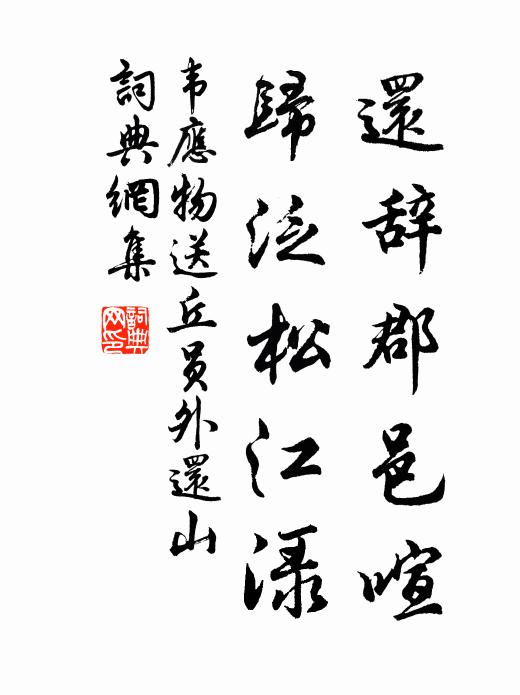 還辞郡邑喧
歸泛松江渌
韦應物送丘員外還山
詞典網集
詞典网印